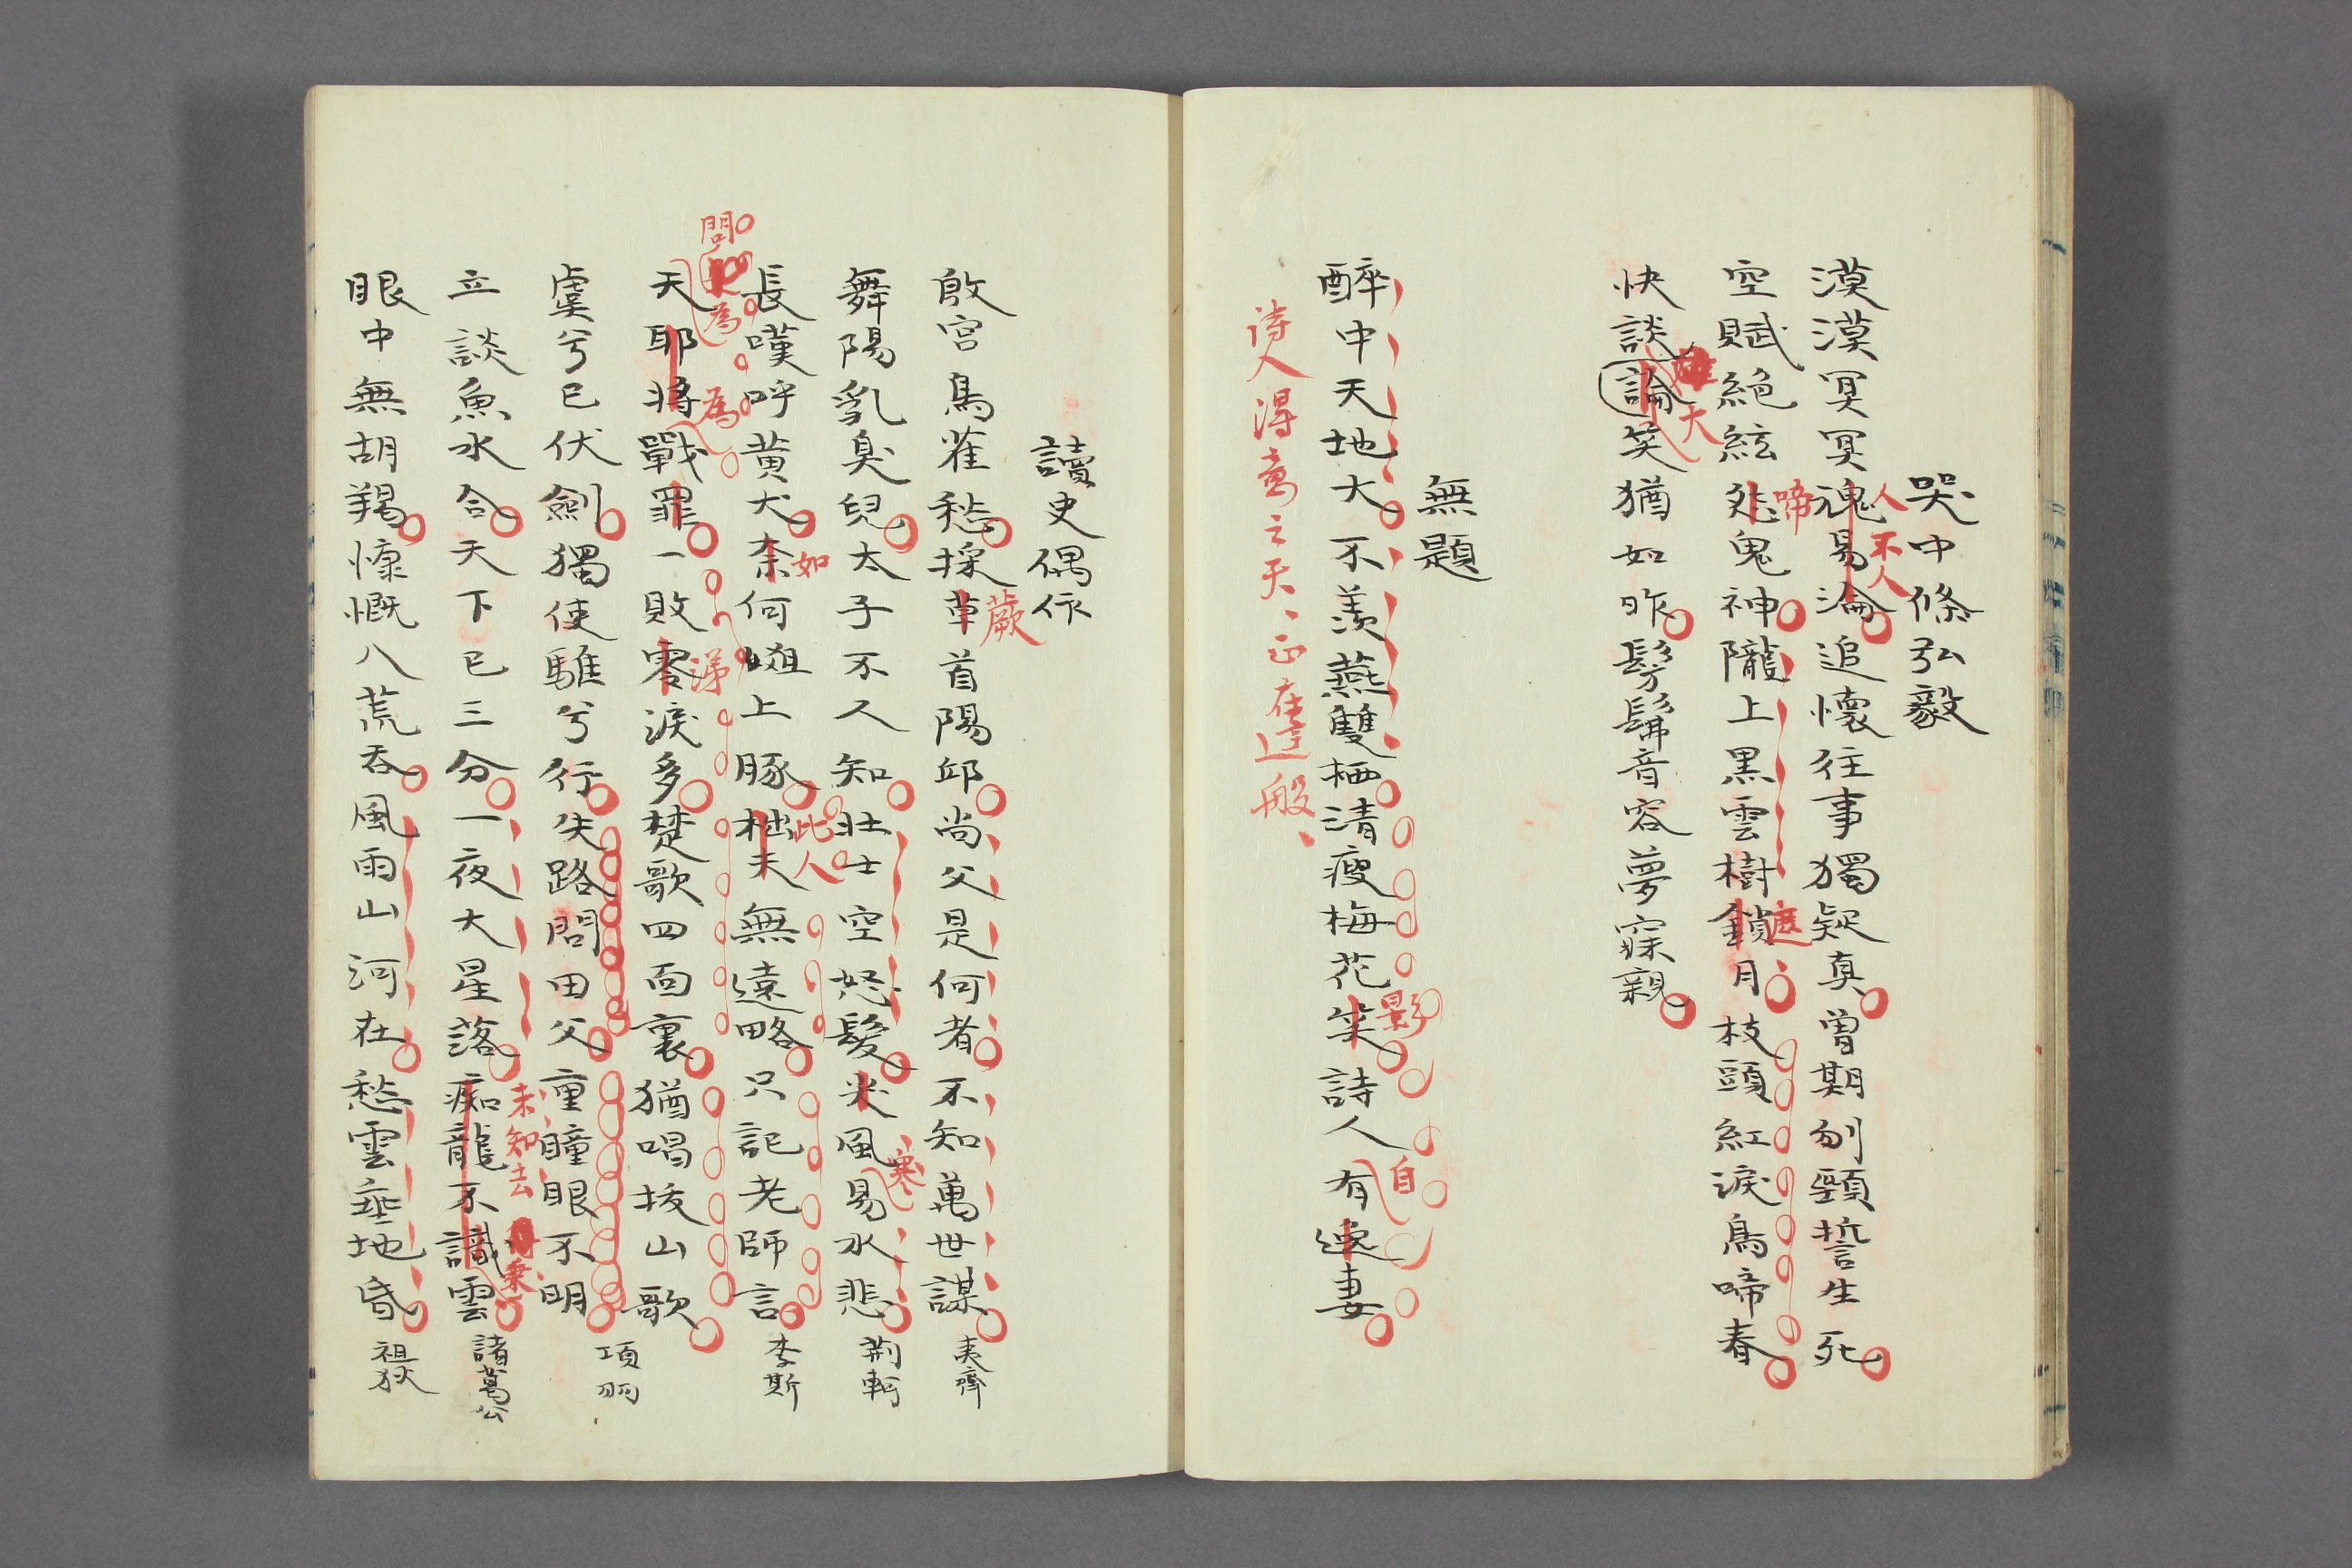 哭中條弘毅
漠漠冥冥魂易淪追懷往事獨疑真曽期刎頸誓生死
人不人
空賦絶絃愁鬼神隴上黒雲樹鎖月枝頭紅淚鳥啼春
啼
遮
快談論笑猶如昨髣髴音容夢寐親
大
無題
醉中天地大不羨燕雙栖清瘦梅花笑詩人有逸妻
影
自
詩人得意之天、正在這般、
讀史偶作
殷宮鳥雀愁採草首陽邱尚父是何者不知萬世謀 夷齊
蕨
舞陽乳臭兒太子不人知壯士空怒髮炎風易水悲 荊軻
寒
長嘆呼黄犬柰何爼上豚柮夫無遠略只記老師言 李斯
如
此人
天耶將戰罪一敗零淚多楚歌四面裏猶唱拔山歌 項羽
問
為
為
涕
虞兮已伏劍獨使騅兮行失路問田父重瞳眼不明
立談魚水合天下已三分一夜大星落痴龍不識雲 諸葛公
未知去
乗
眼中無胡羯慷慨八荒呑風雨山河在愁雲垂地昏 祖狄